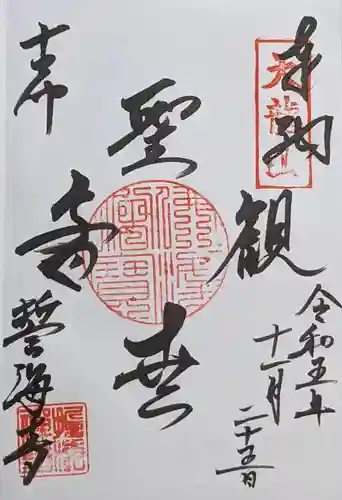 奉納
天龍山
聖
観
世
音
令和五年
十一月
二十五日
誓海寺